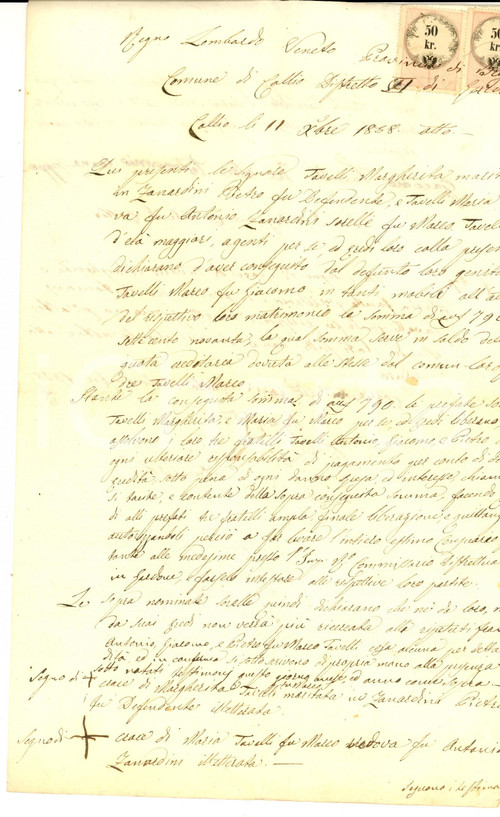 50 kr. 50 kr.
Regno Lombardo Veneto Provincia di
Comune di Collio Distretto VI di
Collio li 11 Xbre 1858 otto.—
Qui presenti le Signore Tavelli Margherita marit
in Zanardini Pietro fu Defendente, e Tavelli Maria
va fu Antonio Zanardini sorelle fu Marco Tavel
d'età maggiori, agenti per se, ed Eredi loro colla presen
dichiarano d'aver conseguito dal defunto loro genit
Tavelli Marco fu Giacomo in tanti mobili all'at
del rispettivo loro matrimonio la somma di 790
settecento novanta, la qual somma serve in saldo del
quota ereditaria dovuta alle stesse dal comun
dre Tavelli Marco
Stante la conseguita somma di 790. le prefate So
Tavelli Margherita, e Maria fu Marco per se, ed Eredi liberano,
i loro tre fratelli Tavelli Antonio, Giacomo e Pietro d
ogni ulteriore responsabilità di pagamento per conto di
eredità sotto pena d'ogni danno spesa ed interesse
si tante, e contente della sopra conseguita somma, facendo
di alli prefati tre fratelli ampla finale liberazione, e quittan
autorizzandoli perciò a far levare l'intiero estimo
tante alle medesime presso l' Commissario Distrettua
in Gardone, e farselo intestare alle rispettive loro partite.
Le sopra nominate sorelle quindi dichiarano che nè da loro, n
da suoi Eredi non verrà più ricercata alli ripetuti frat
Antonio, Giacomo, e Pietro fu Marco Tavelli cosa alcuna per detta
ed in conferma si sottoscrivono di propria mano alla presenza
sotto notati testimonj questo giorno, mese, ed anno come sopra—
Segno di + croce di Margherita Tavelli fu Marco maritata in Zanardini Pietro
fu Defendente illetterata
Segno di + croce di Maria Tavelli fu Marco vedova fu Antonio
Zanardini illetterata.—
Segnano i testimon